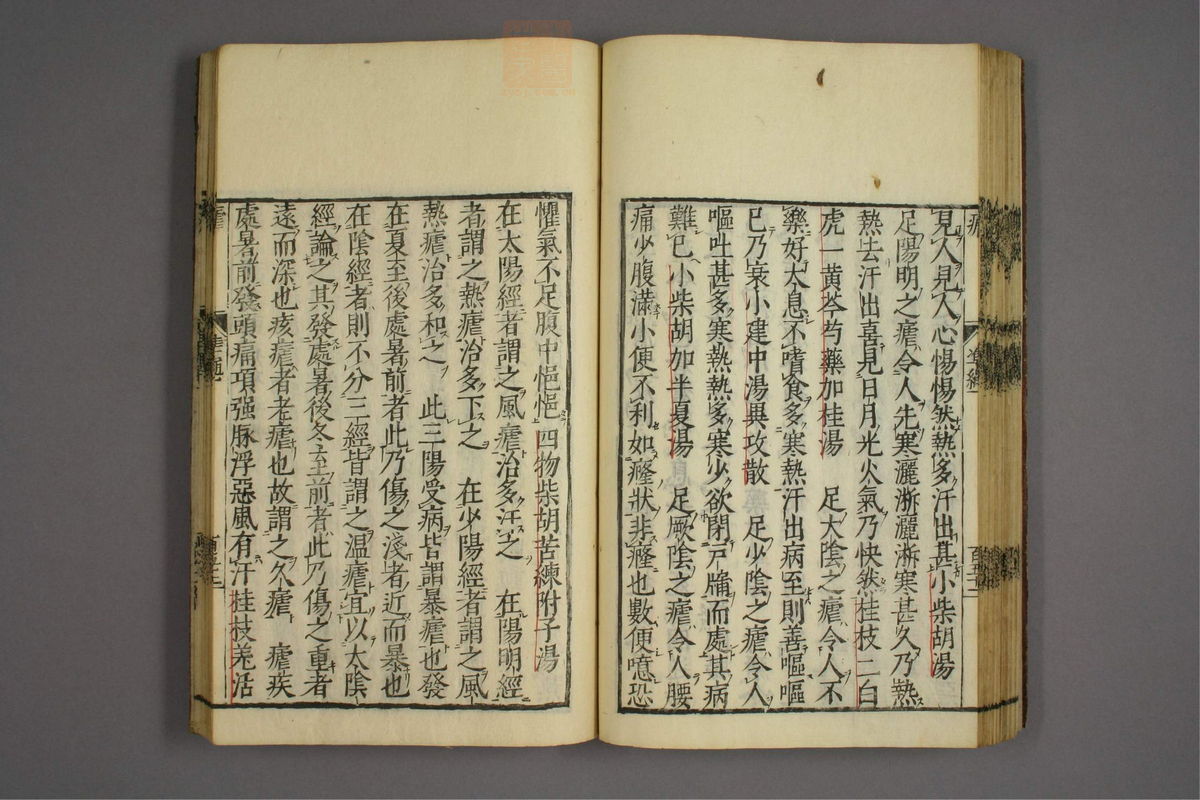 見人見人心惕惕然熱多汗出甚小柴胡湯
足陽明之瘧令人先寒灑淅灑淅寒甚久乃熱
熱去汗出喜見日月光火氣乃快然桂枝二白
虎一黄芩芍藥加桂湯　足太陰之瘧令人不
樂好大息不嗜食多寒熱汗出病至則善嘔嘔
已乃衰小建中湯異攻散　足少陰之瘧令人
嘔吐甚多寒熱熱多寒少欲閉戸牖而處其病
難已小柴胡加半夏湯　足厥陰之瘧令人腰
痛少腹滿小便不利如癃狀非癃也數便噫恐
懼氣不足腹中悒悒四物柴胡苦練附子湯
在太陽經者謂之風瘧治多汗之　在陽明經
者謂之熱瘧治多下之　在少陽經者謂之風
熱瘧治多和之　此三陽受病皆謂暴瘧也發
在夏至後處暑前者此乃傷之淺者近而暴也
在陰經者則不分三經皆謂之温瘧宜以太陰
經論之其發處暑後冬至前者此乃傷之重者
遠而深也痎瘧者老瘧也故謂之久瘧　瘧疾
處暑前發頭痛項强脉浮惡風有汗桂枝羌活